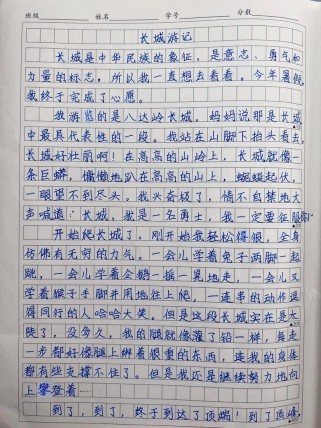 班级 姓名 学号 分数
长城游记
长城是中华民族的象征，是意志、勇气和
力量的标志，所以我一直想去看看。今年暑假，
我终于完成了心愿。
我游览的是八达岭长城，妈妈说那是长城
中最具代表性的一段。我站在山脚下抬头看去，
长城好壮丽啊！在高高的山岭上，长城就像一
条巨蟒，懒懒地趴在高高的山上，蜿蜒起伏，
一眼望不到尽头。我兴奋极了，情不自禁地大
声喊道：“长城，我是一名勇士，我一定要征服你！”
开始爬长城了。刚开始我轻松得很，全身
仿佛有无穷的力气。一会儿学着兔子两脚一起
跳，一会儿学着企鹅一摇一晃地走，一会儿又
学着猴子手脚并用地往上爬，一连串的动作逗
得同行的人哈哈大笑。但是这段长城实在是太
陡了，没多久，我的腿就像灌了铅一样，每走
一步都好像腿上绑着很重的东西，连我的身体
都有些支撑不住了。但是我还是继续努力地向
上攀登着……
到了，到了，终于到达了顶端！到了顶峰，